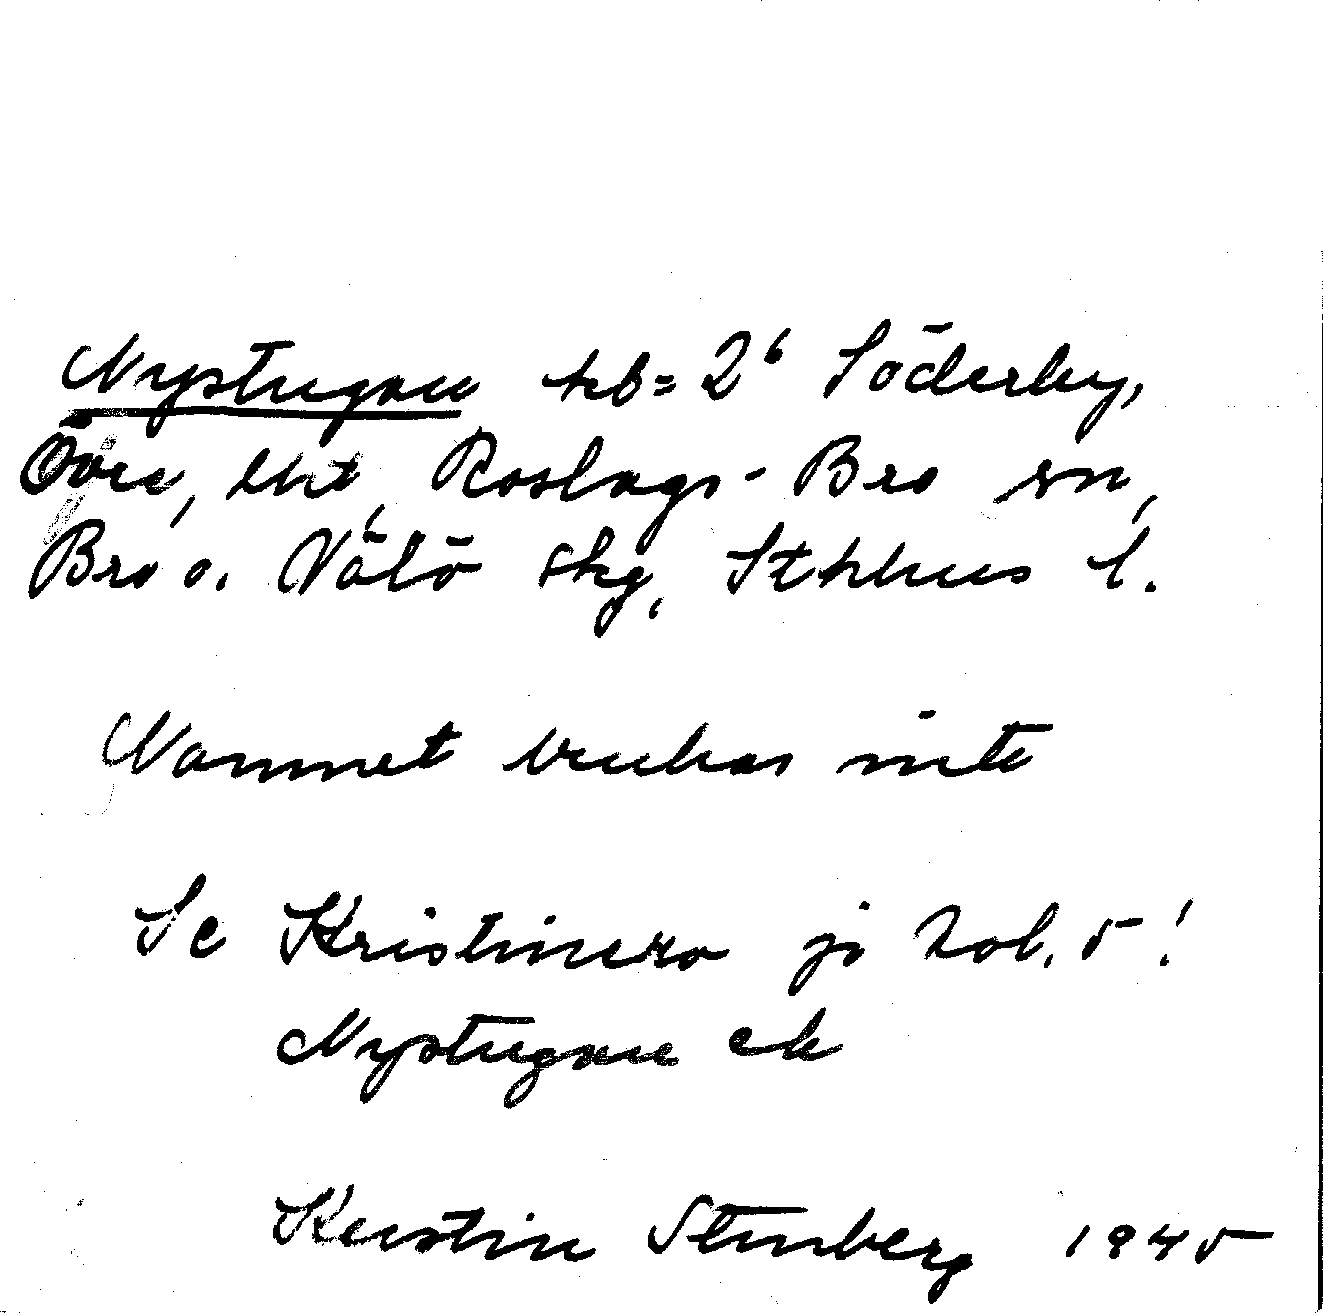 Nystugan tkb = 2⁶ Söderby,
Övre, Roslags-Bro sn,
Bro o. Vätö skg, Sthlms l.
Namnet brukas inte
Se Kristinero på kol. 5!
Nystugan ek
Kerstin Stenberg 1945